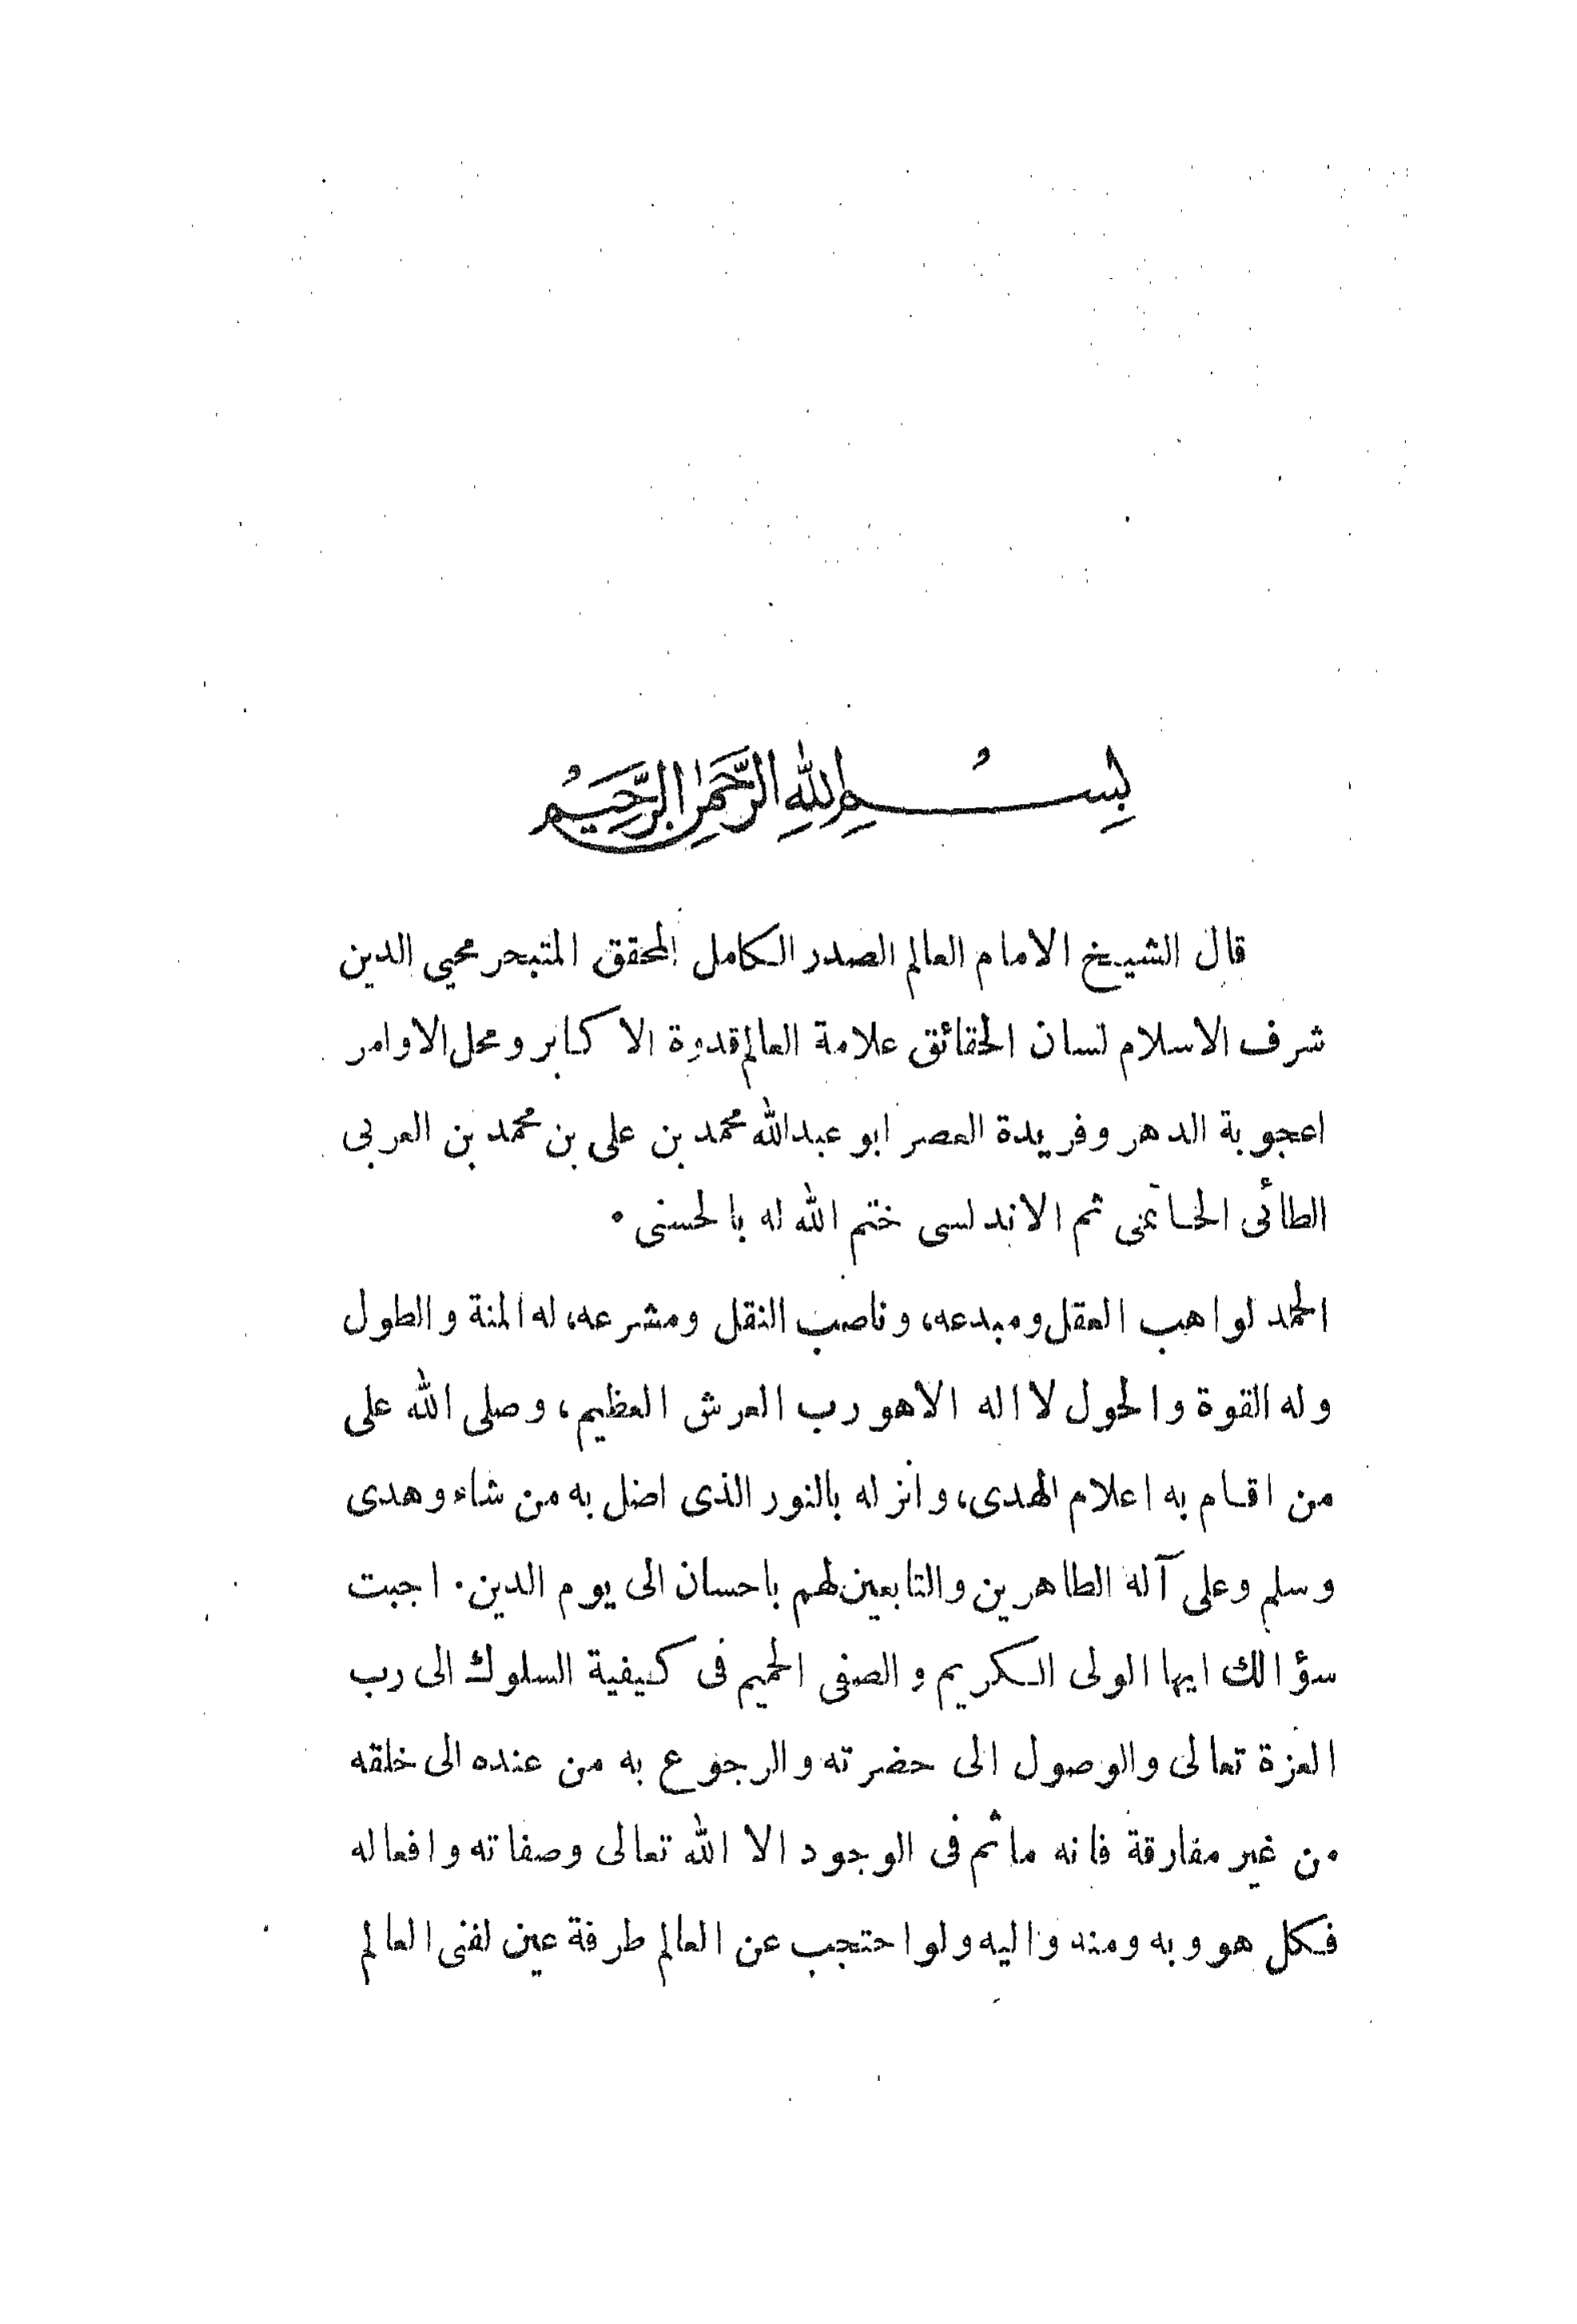 بِسْمِ اللهِ الرَّحْمٰنِ الرَّحِيْمِ
قال الشيخ الامام العالم الصدر الكامل المحقق المتبحر محيي الدين
شرف الاسلام لسان الحقائق علامة العالم قدوة الاكابر ومحل الاوامر
اعجوبة الدهر وفريدة العصر ابو عبدالله محمد بن على بن محمد بن العربى
الطائى الحاتمى ثم الاندلسى ختم الله له بالحسنى.
الحمد لواهب العقل ومبدعه، وناصب النقل ومشرعه، له المنة والطول
وله القوة والحول لا اله الا هو رب العرش العظيم، وصلى الله على
من اقام به اعلام الهدى، وانزله بالنور الذى اضل به من شاء وهدى
وسلم وعلى آله الطاهرين والتابعين لهم باحسان الى يوم الدين. اجبت
سؤالك ايها الولى الكريم والصفى الحميم فى كيفية السلوك الى رب
العزة تعالى والوصول الى حضرته والرجوع به من عنده الى خلقه
من غير مفارقة فانه ماثم فى الوجود الا الله تعالى وصفاته وافعاله
فكل هو وبه ومنه واليه ولو احتجب عن العالم طرفة عين لفنى العالم